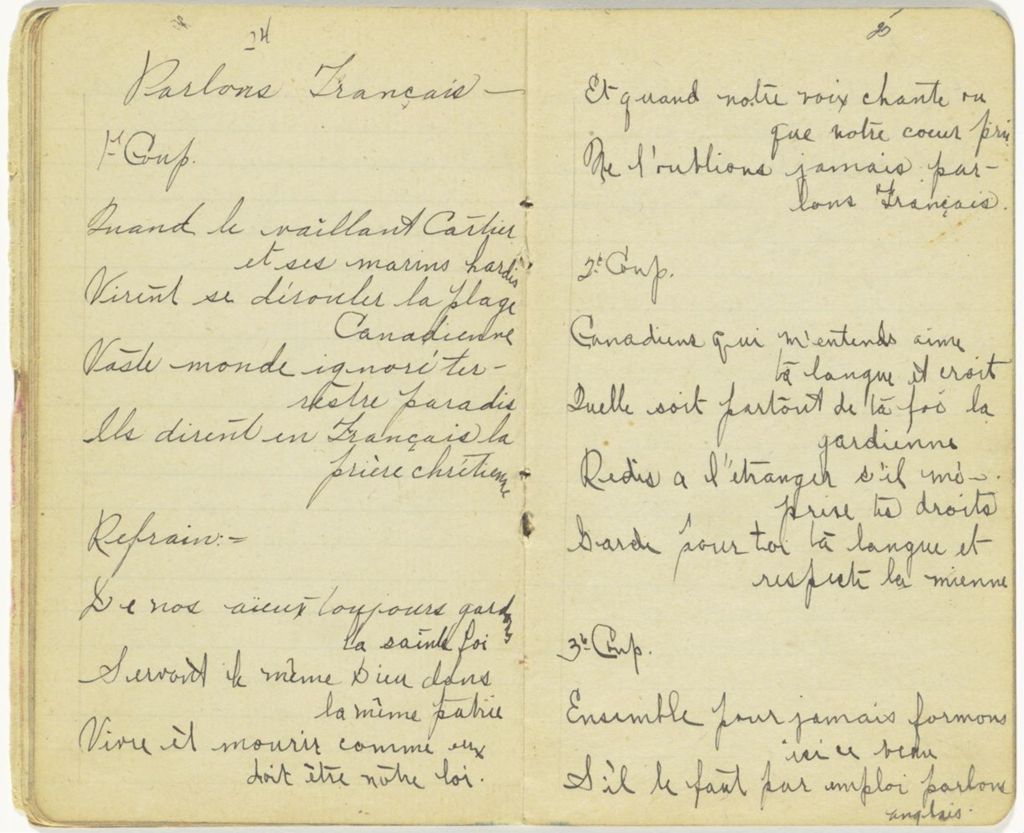 24
Parlons Français —
1er Coup.
Quand le vaillant Cartier
et ses marins hardis
Virent se dérouler la plage
Canadienne
Vaste monde ignoré ter-
restre paradis
Ils dirent en Français la
prière chrétienne
Refrain:=
De nos aïeux toujours gardons
la sainte foi
Servont le même Dieu dans
la même patrie
Vivre et mourir comme eux
doit être nôtre loi.
25
Et quand notre voix chante ou
que notre coeur prie
Ne l'oublions jamais par-
lons Français.
2e Coup.
Canadiens qui m'entends aime
ta langue et croit
Quelle soit partout de ta foi la
gardienne
Redis a l'étranger s'il mé-
prise tes droits
Garde pour toi ta langue et
respecte la mienne
3e Coup.
Ensemble pour jamais formons
ici ce beau
S'il le faut par emploi parlons
anglais.